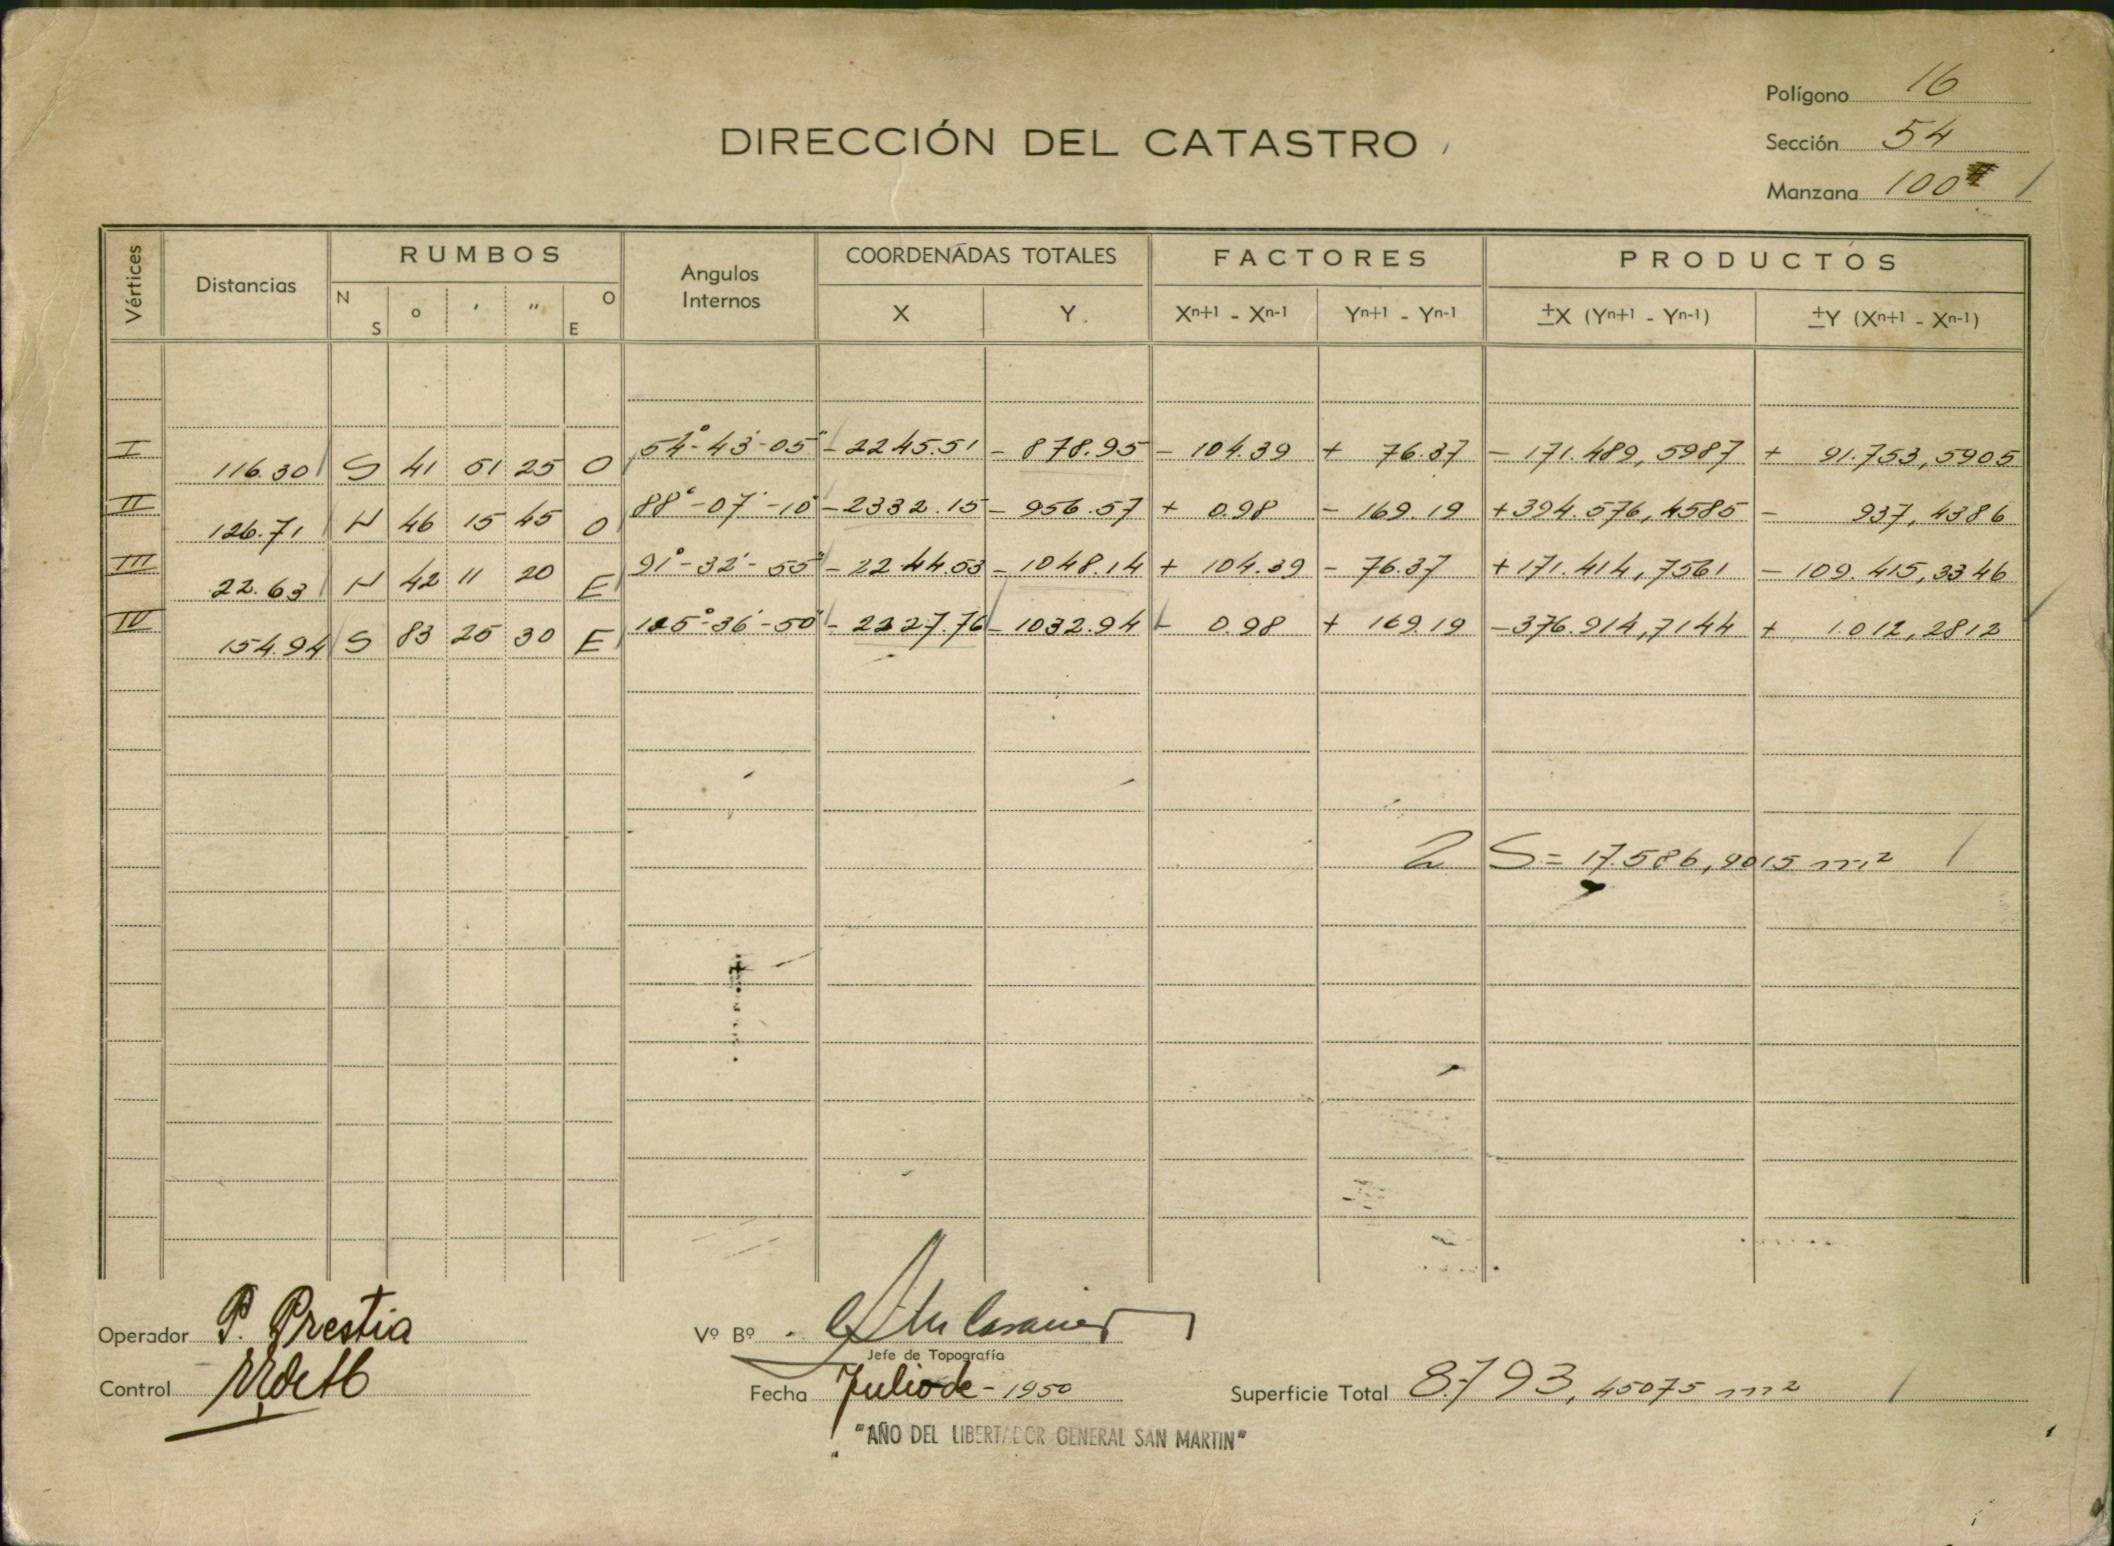 Polígono 16
DIRECCIÓN DEL CATASTRO
Sección 54
Manzana 100
Vértices Distancias RUMBOS N S ° ' " E O Angulos Internos COORDENADAS TOTALES X Y FACTORES Xn+1 - Xn-1 Yn+1 - Yn-1 PRODUCTOS ±X (Yn+1 - Yn-1) ±Y (Xn+1 - Xn-1)
I 116.30 S 41 51 25 O 54°-43'-05" - 2245.51 - 878.95 - 104.39 + 76.37 - 171.489,5987 + 91.753,5905
II 126.71 N 46 15 45 O 88°-07'-10" - 2332.15 - 956.57 + 0.98 - 169.19 + 394.576,4585 - 937,4386
III 22.63 N 42 11 20 E 91°-32'-55" - 2244.53 - 1048.14 + 104.39 - 76.37 + 171.414,7561 - 109.415,3346
IV 154.94 S 83 25 30 E 125°-36'-50" - 2227.76 - 1032.94 - 0.98 + 169.19 - 376.914,7144 + 1.012,2812
2 S = 17.586,9015 m²
Operador P. Prestia
Vº Bº
Jefe de Topografía
Control
Fecha Julio de - 1950
Superficie Total 8.793,45075 m²
"AÑO DEL LIBERTADOR GENERAL SAN MARTIN"